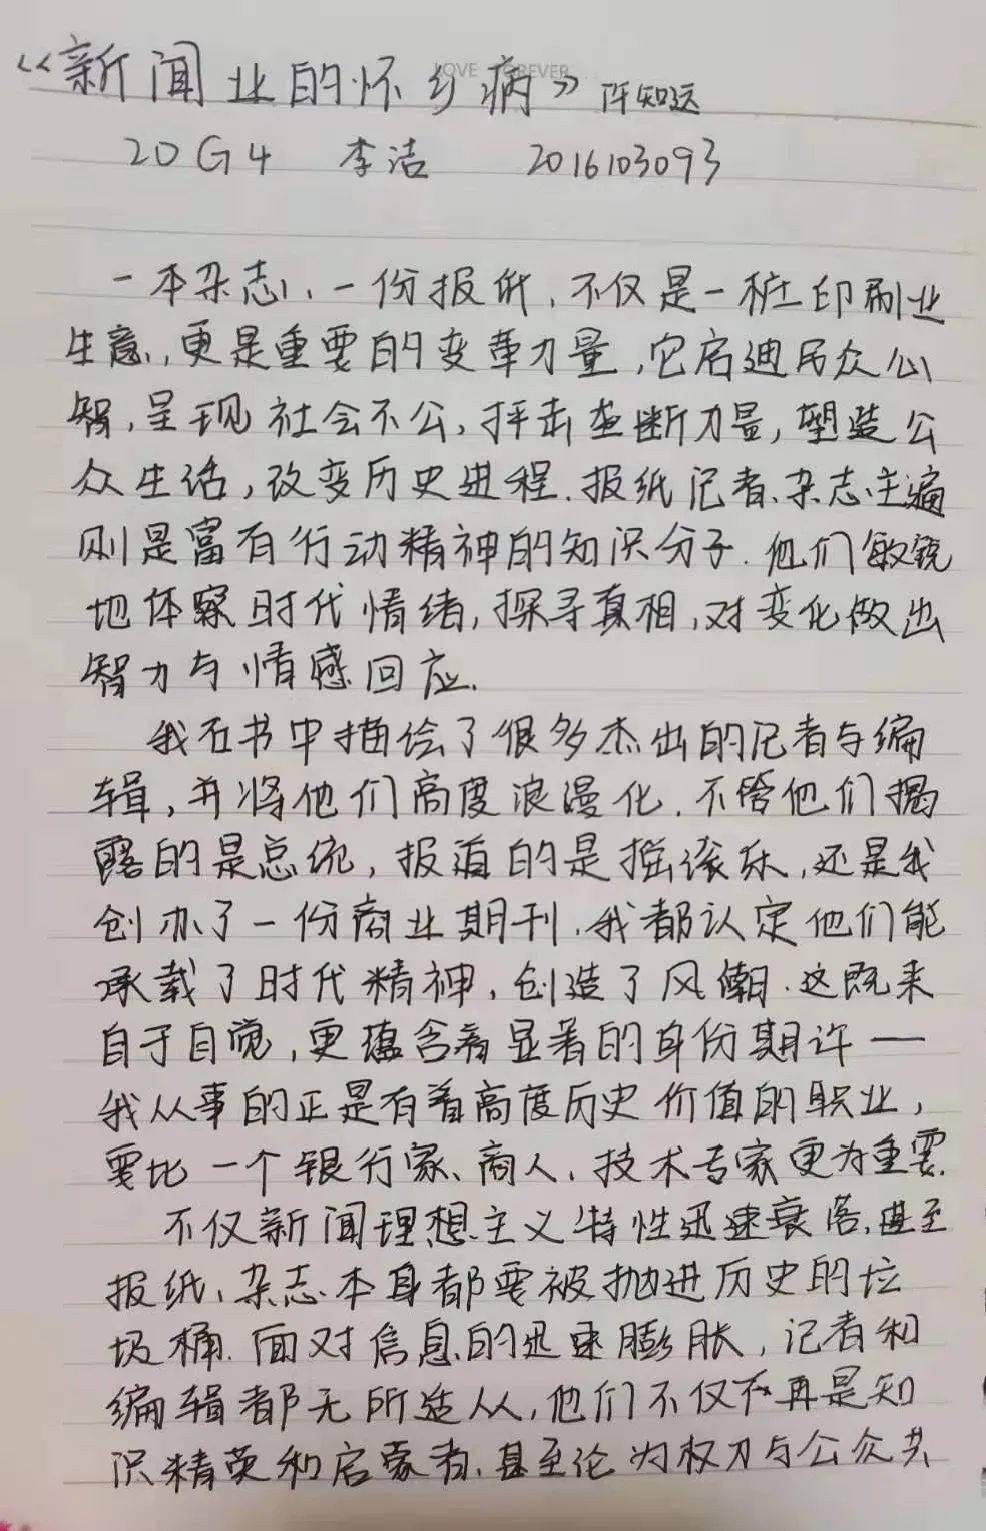 《新闻业的怀乡病》 许知远
LOVE FOREVER
20G4 李洁 2016103093
一本杂志、一份报纸，不仅是一桩印刷业
生意，更是重要的变革力量，它启迪民众心
智，呈现社会不公，抨击垄断力量，塑造公
众生活，改变历史进程。报纸记者、杂志主编
则是富有行动精神的知识分子。他们敏锐
地体察时代情绪，探寻真相，对变化做出
智力与情感回应。
我在书中描绘了很多杰出的记者与编
辑，并将他们高度浪漫化。不管他们揭
露的是总统，报道的是摇滚乐，还是我
创办了一份商业期刊，我都认定他们能
承载了时代精神，创造了风潮。这既来
自于自觉，更蕴含着显著的身份期许——
我从事的正是有着高度历史价值的职业，
要比一个银行家、商人、技术专家更为重要。
不仅新闻理想主义特性迅速衰落，甚至
报纸、杂志本身都要被抛进历史的垃
圾桶。面对信息的迅速膨胀，记者和
编辑都无所适从，他们不仅不再是知
识精英和启蒙者，甚至沦为权力与公众共